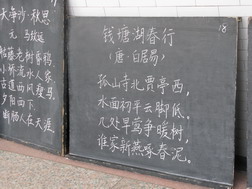 天净沙·秋思
元 马致远
枯藤老树昏鸦
小桥流水人家
古道西风瘦马
夕阳西下
断肠人在天涯
18
钱塘湖春行
(唐·白居易)
孤山寺北贾亭西,
水面初平云脚低。
几处早莺争暖树,
谁家新燕啄春泥。